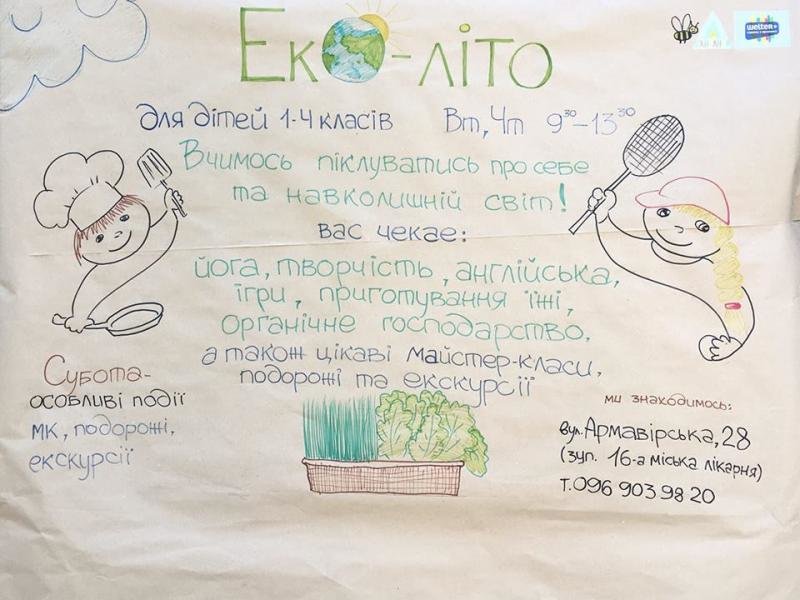 Еко-літо
для дітей 1-4 класів Вт, Чт 9³⁰-13³⁰
Вчимось піклуватись про себе
та навколишній світ!
вас чекає:
йога, творчість, англійська,
ігри, приготування їжі,
органічне господарство,
а також цікаві майстер-класи,
подорожі та екскурсії
Субота-
особливі події
мк, подорожі,
екскурсії
ми знаходимось:
вул. Армавірська, 28
(зуп. 16-а міська лікарня)
т. 096 903 98 20
welter+